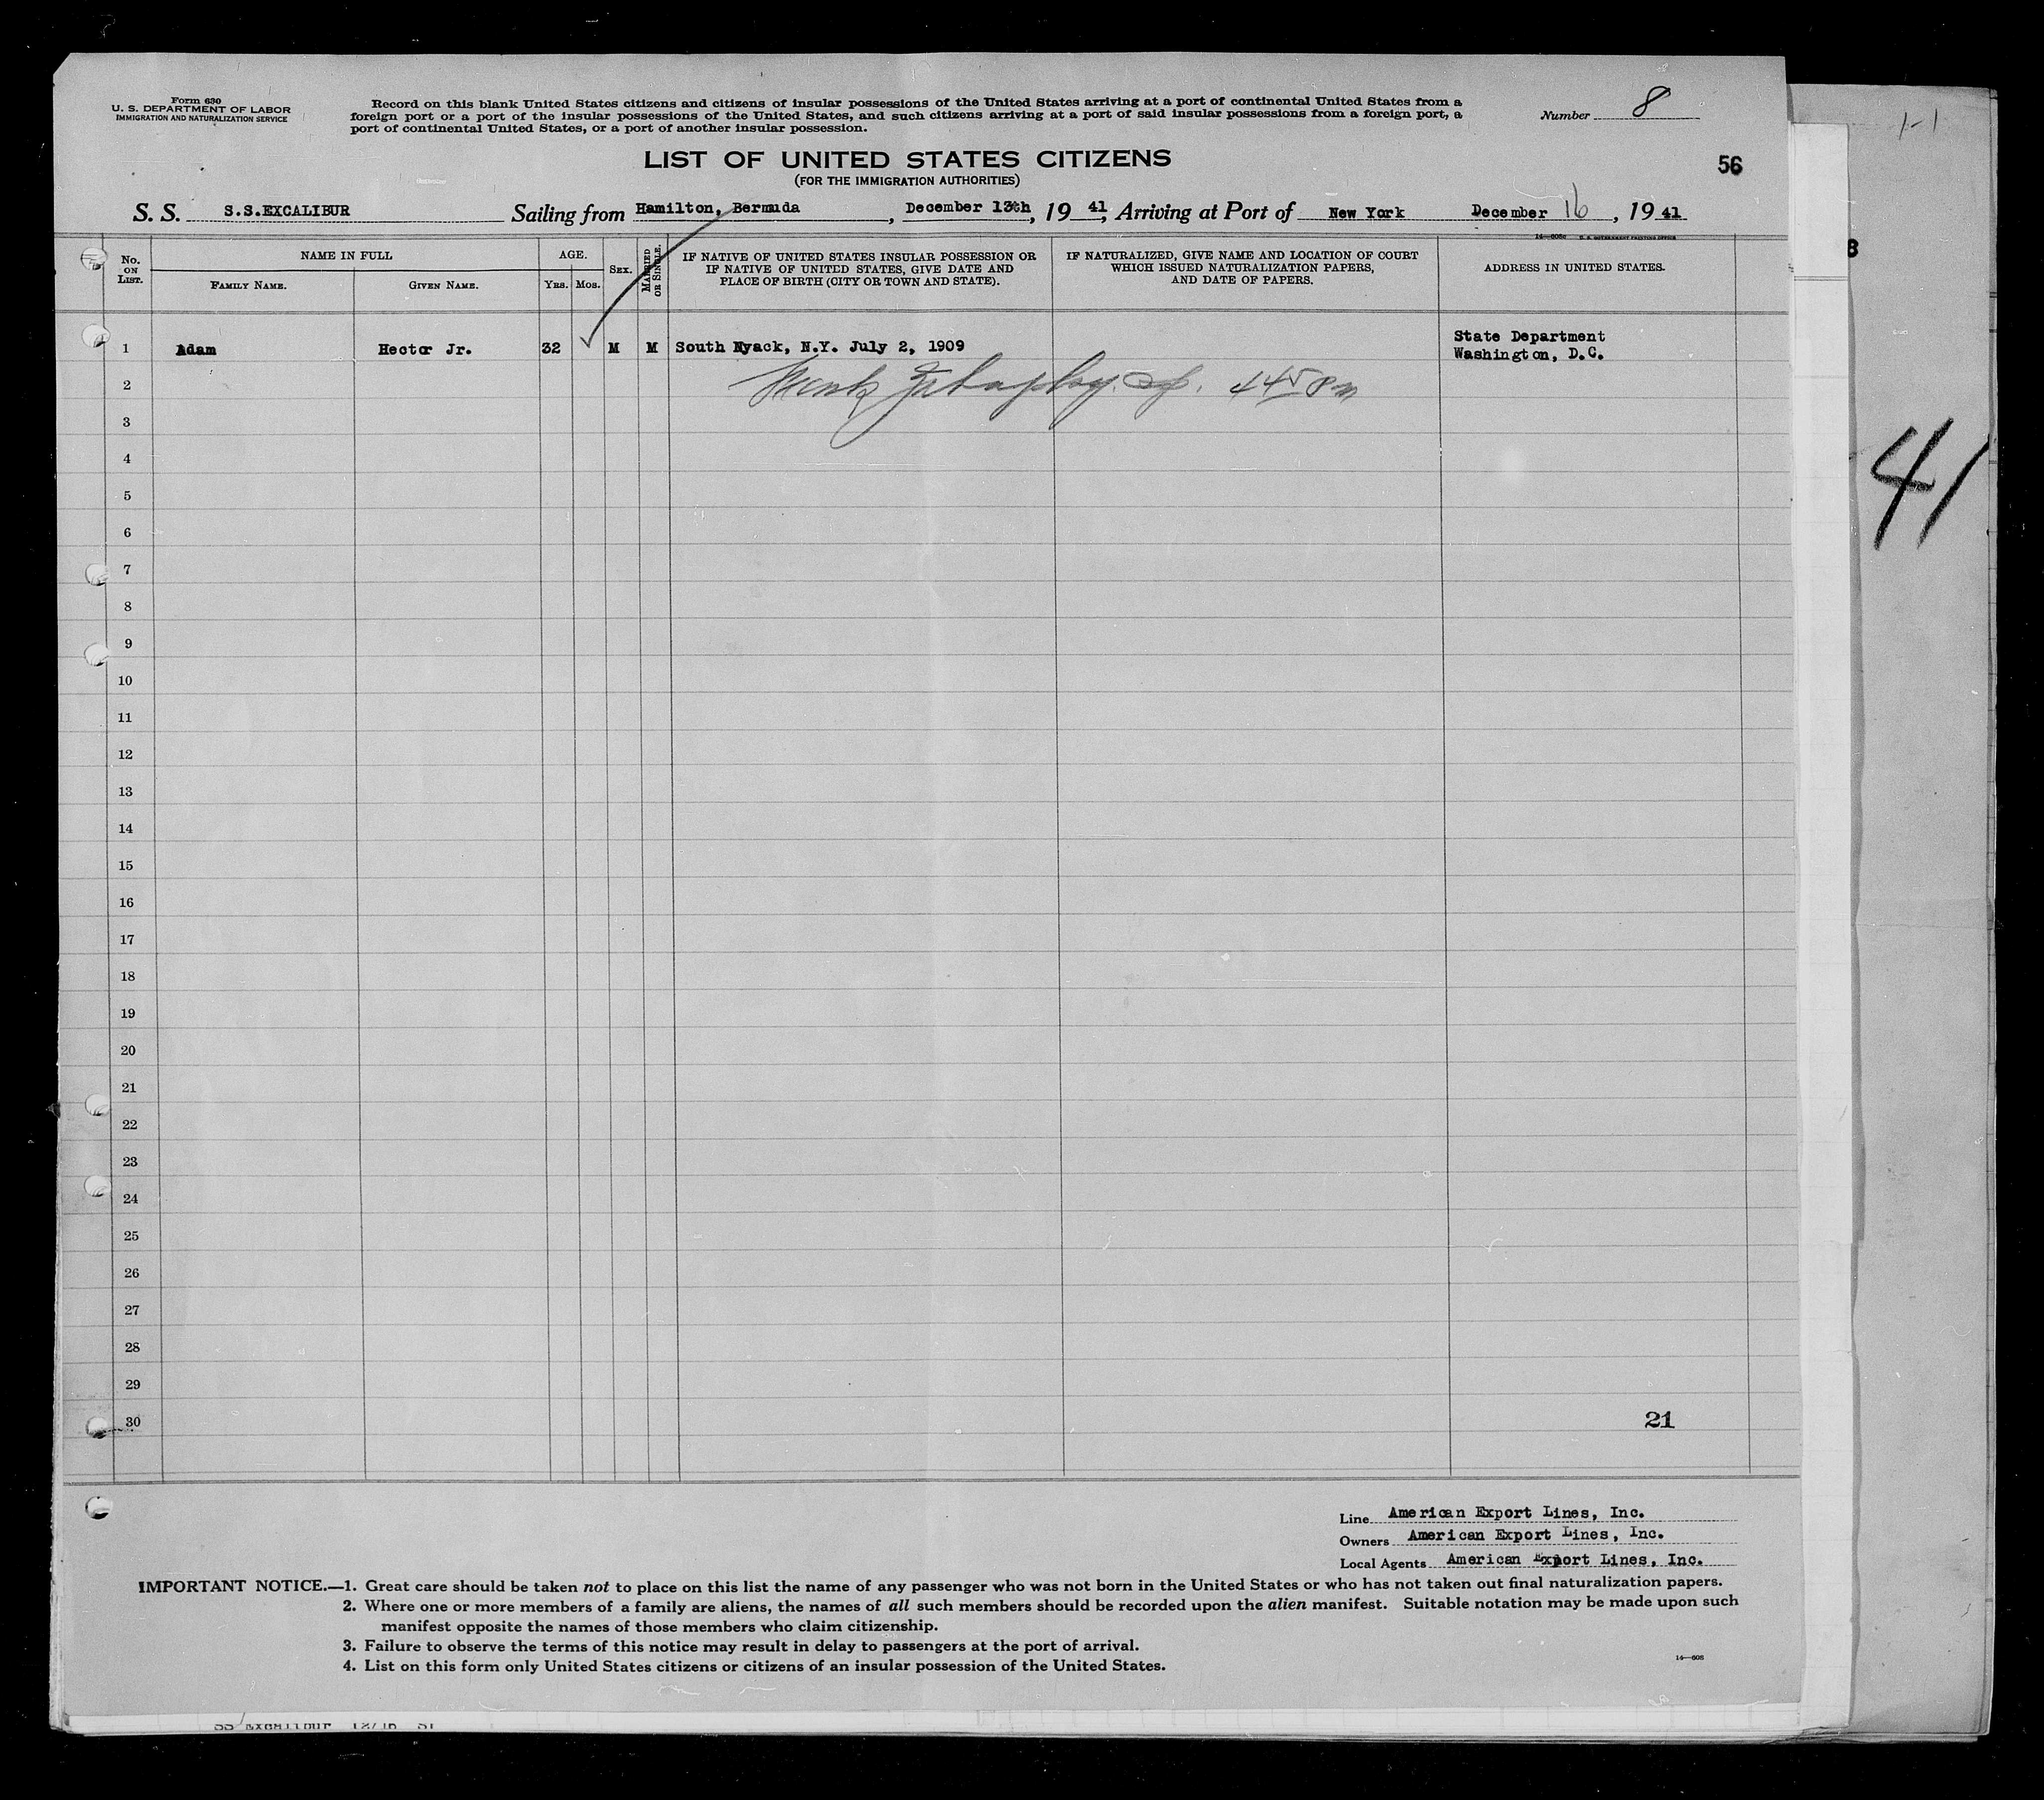 Form 630
U. S. DEPARTMENT OF LABOR
IMMIGRATION AND NATURALIZATION SERVICE
Record on this blank United States citizens and citizens of insular possessions of the United States arriving at a port of continental United States from a
foreign port or a port of the insular possessions of the United States, and such citizens arriving at a port of said insular possessions from a foreign port, a
port of continental United States, or a port of another insular possession.
Number 8
1-1
LIST OF UNITED STATES CITIZENS
(FOR THE IMMIGRATION AUTHORITIES)
56
S. S. S.S.EXCALIBUR Sailing from Hamilton, Bermuda, December 13th, 19 41, Arriving at Port of New York December 16, 19 41
No. ON LIST.
NAME IN FULL
FAMILY NAME.
GIVEN NAME.
AGE.
YRS. MOS.
SEX.
MARRIED OR SINGLE.
IF NATIVE OF UNITED STATES INSULAR POSSESSION OR
IF NATIVE OF UNITED STATES, GIVE DATE AND
PLACE OF BIRTH (CITY OR TOWN AND STATE).
IF NATURALIZED, GIVE NAME AND LOCATION OF COURT
WHICH ISSUED NATURALIZATION PAPERS,
AND DATE OF PAPERS.
ADDRESS IN UNITED STATES.
1 Adam Hector Jr. 32 M M South Nyack, N.Y. July 2, 1909 State Department
Washington, D.C.
2 445 Pm
3
4
41
5
6
7
8
9
10
11
12
13
14
15
16
17
18
19
20
21
22
23
24
25
26
27
28
29
30 21
Line American Export Lines, Inc.
Owners American Export Lines, Inc.
Local Agents American Export Lines, Inc.
IMPORTANT NOTICE.—1. Great care should be taken not to place on this list the name of any passenger who was not born in the United States or who has not taken out final naturalization papers.
2. Where one or more members of a family are aliens, the names of all such members should be recorded upon the alien manifest. Suitable notation may be made upon such
manifest opposite the names of those members who claim citizenship.
3. Failure to observe the terms of this notice may result in delay to passengers at the port of arrival.
4. List on this form only United States citizens or citizens of an insular possession of the United States.
14—608